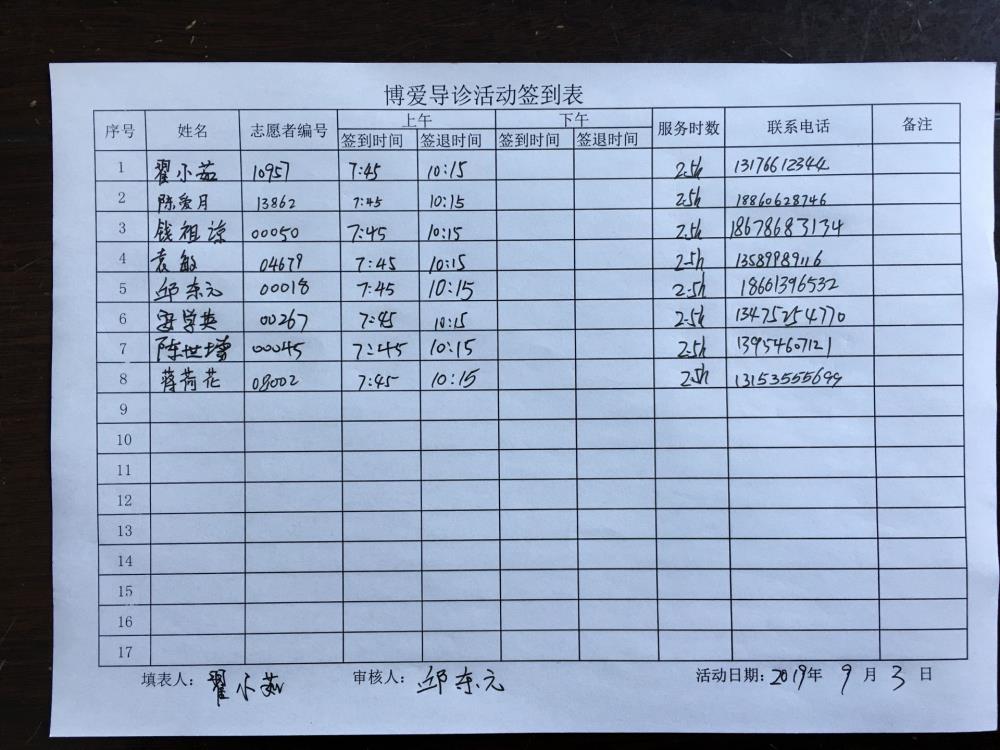 博爱导诊活动签到表
序号 姓名 志愿者编号 上午 下午 服务时数 联系电话 备注
签到时间 签退时间 签到时间 签退时间
1 翟小茹 10957 7:45 10:15 2.5h 13176612344
2 陈爱月 13862 7:45 10:15 2.5h 18860628746
3 钱祖谅 00050 7:45 10:15 2.5h 18678683134
4 袁敏 04679 7:45 10:15 2.5h 13589989116
5 邱东元 00018 7:45 10:15 2.5h 18601396532
6 学英 00267 7:45 10:15 2.5h 13475254770
7 陈世增 00045 7:45 10:15 2.5h 13954607121
8 蒋荷花 08002 7:45 10:15 2.5h 13153555699
9
10
11
12
13
14
15
16
17
填表人: 翟小茹 审核人: 邱东元 活动日期: 2019年 9月 3日